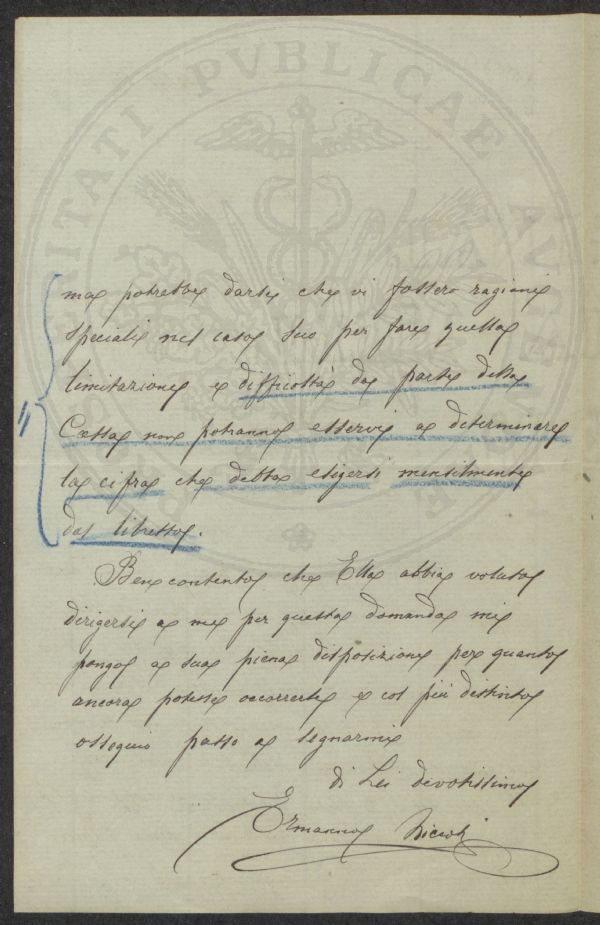 PUBLICAE
ma potrebbe darsi che vi fossero ragioni
speciali nel caso suo per fare quella
limitazione e difficoltà da parte della
Cassa non potranno esservi a determinare
la cifra che debba esigersi mensilmente
dal libretto.
Ben contento che Ella abbia voluto
dirigersi a me per questa domanda mi
pongo a sua piena disposizione per quanto
ancora potesse occorrerle e col più distinto
ossequio passo a segnarmi
di Lei devotissimo
Ermanno